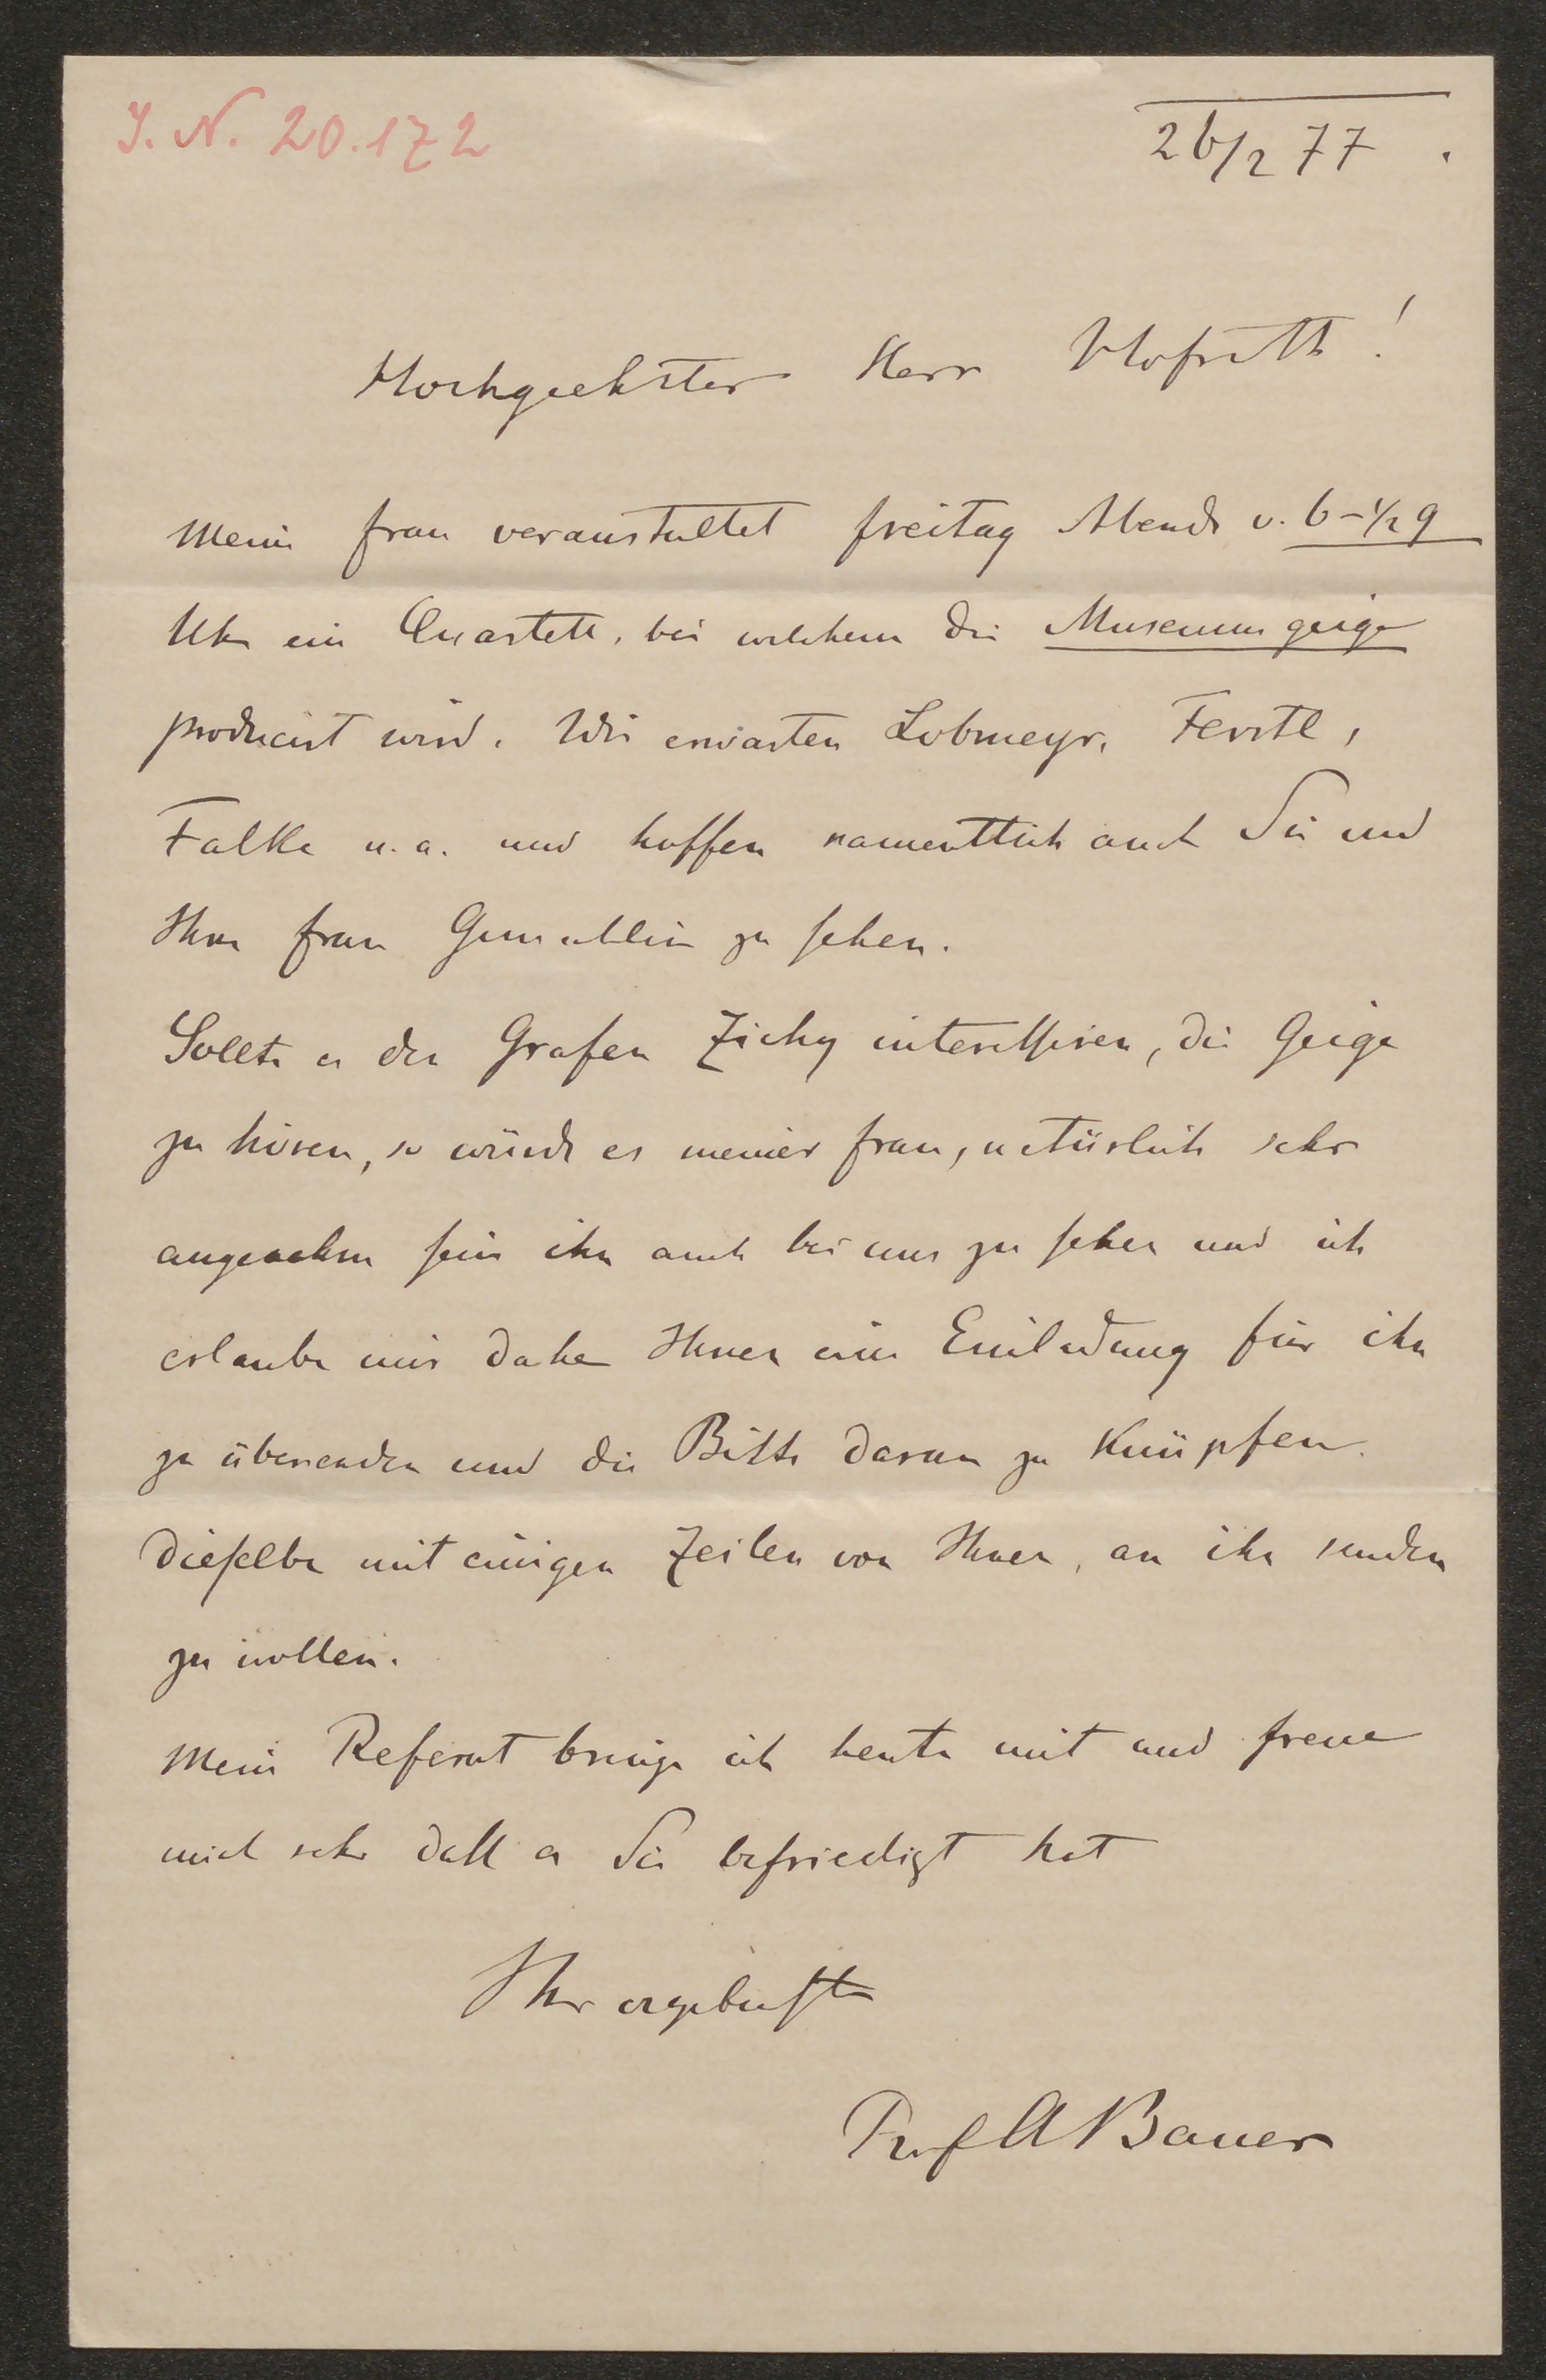 J. N. 20.172
26/2 77.
Hochgeehrter Herr Hofrath!
Meine Frau veranstaltet Freitag Abends v. 6–1/2 9
Uhr ein Quartett, bei welchem die Museumsgeige
producirt wird. Wir erwarten Lobmeyr, Ferstl,
Falke u. a. und hoffen namentlich auch Sie und
Ihre Frau Gemahlin zu sehen.
Sollte es den Grafen Zichy interessiren, die Geige
zu hören, so würde es meiner Frau, natürlich sehr
angenehm sein ihn auch bei uns zu sehen und ich
erlaube mir daher Ihnen eine Einladung für ihn
zu übersenden und die Bitte daran zu knüpfen
dieselbe mit einigen Zeilen von Ihnen, an ihn senden
zu wollen.
Mein Referat bringe ich heute mit und freue
mich sehr dass es Sie befriedigt hat
Ihr ergebenster
Prof A Bauer